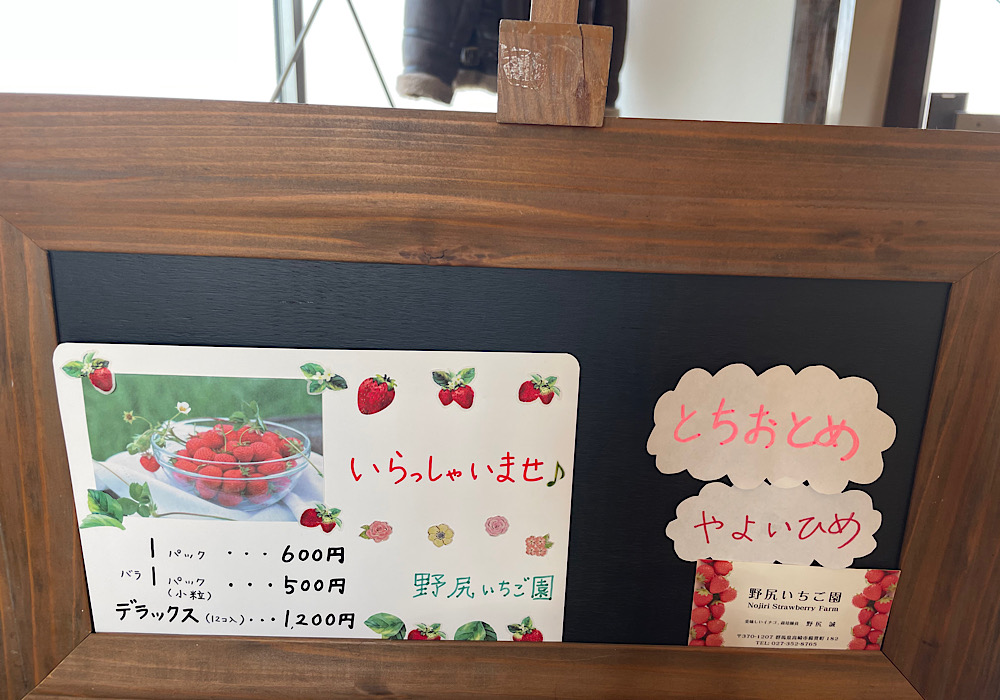 いらっしゃいませ♪
1 パック ・・・ 600円
バラ 1 パック (小粒) ・・・ 500円
デラックス (12コ入) ・・・ 1,200円
野尻いちご園
とちおとめ
やよいひめ
野尻いちご園
Nojiri Strawberry Farm
野尻 誠
〒370-1207 群馬県高崎市綿貫町 182
TEL: 027-352-8765